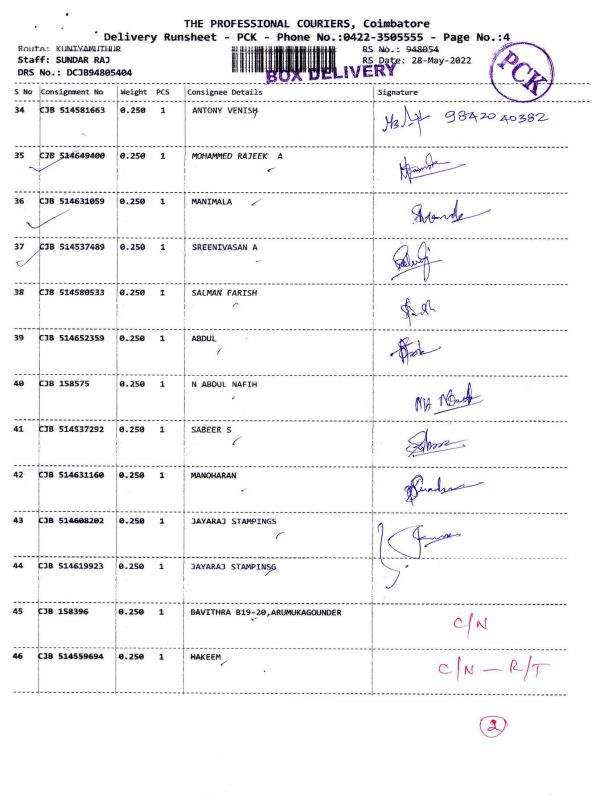 THE PROFESSIONAL COURIERS, Coimbatore
Delivery Runsheet - PCK - Phone No.:0422-3505555 - Page No.:4
Route: KUNIYAMUTHUR RS No.: 948054
Staff: SUNDAR RAJ RS Date: 28-May-2022
DRS No.: DCJB94805404
BOX DELIVERY
PCK
S No Consignment No Weight PCS Consignee Details Signature
34 CJB 514581663 0.250 1 ANTONY VENISH 98420 40382
35 CJB 514649400 0.250 1 MOHAMMED RAJEEK A
36 CJB 514631059 0.250 1 MANIMALA
37 CJB 514537489 0.250 1 SREENIVASAN A
38 CJB 514580533 0.250 1 SALMAN FARISH
39 CJB 514652359 0.250 1 ABDUL
40 CJB 158575 0.250 1 N ABDUL NAFIH
41 CJB 514537292 0.250 1 SABEER S
42 CJB 514631160 0.250 1 MANOHARAN
43 CJB 514608202 0.250 1 JAYARAJ STAMPINGS
44 CJB 514619923 0.250 1 JAYARAJ STAMPINSG
45 CJB 158396 0.250 1 BAVITHRA B19-20,ARUMUKAGOUNDER C/N
46 CJB 514559694 0.250 1 HAKEEM C/N - R/T
2